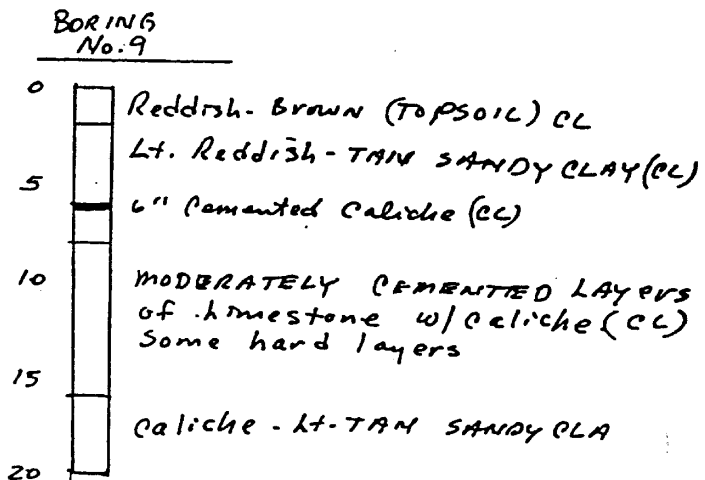 BORING
No. 9
0
Reddish-Brown (TOPSOIL) CL
Lt. Reddish-TAN SANDY CLAY (CL)
5
6" Cemented Caliche (CL)
10
MODERATELY CEMENTED LAYErS
of limestone w/ caliche (CL)
Some hard layers
15
Caliche - Lt-TAN SANDY CLA
20